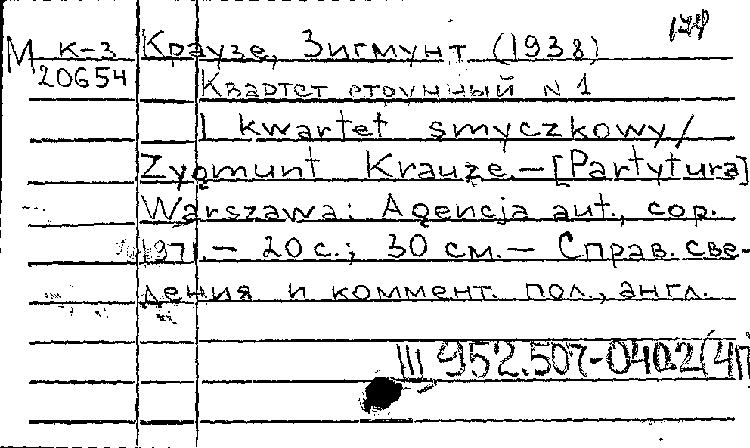 М к-3 Краузе, Зигмунт (1938)
20654 Квартет струнный N 1
I kwartet smyczkowy /
Zygmunt Krauze. — [Partytura]
Warszawa: Agencja aut., cop.
1971. — 20 с.; 30 см. — Справ. све-
дения и коммент. пол., англ.
III 952.507-0402(4П